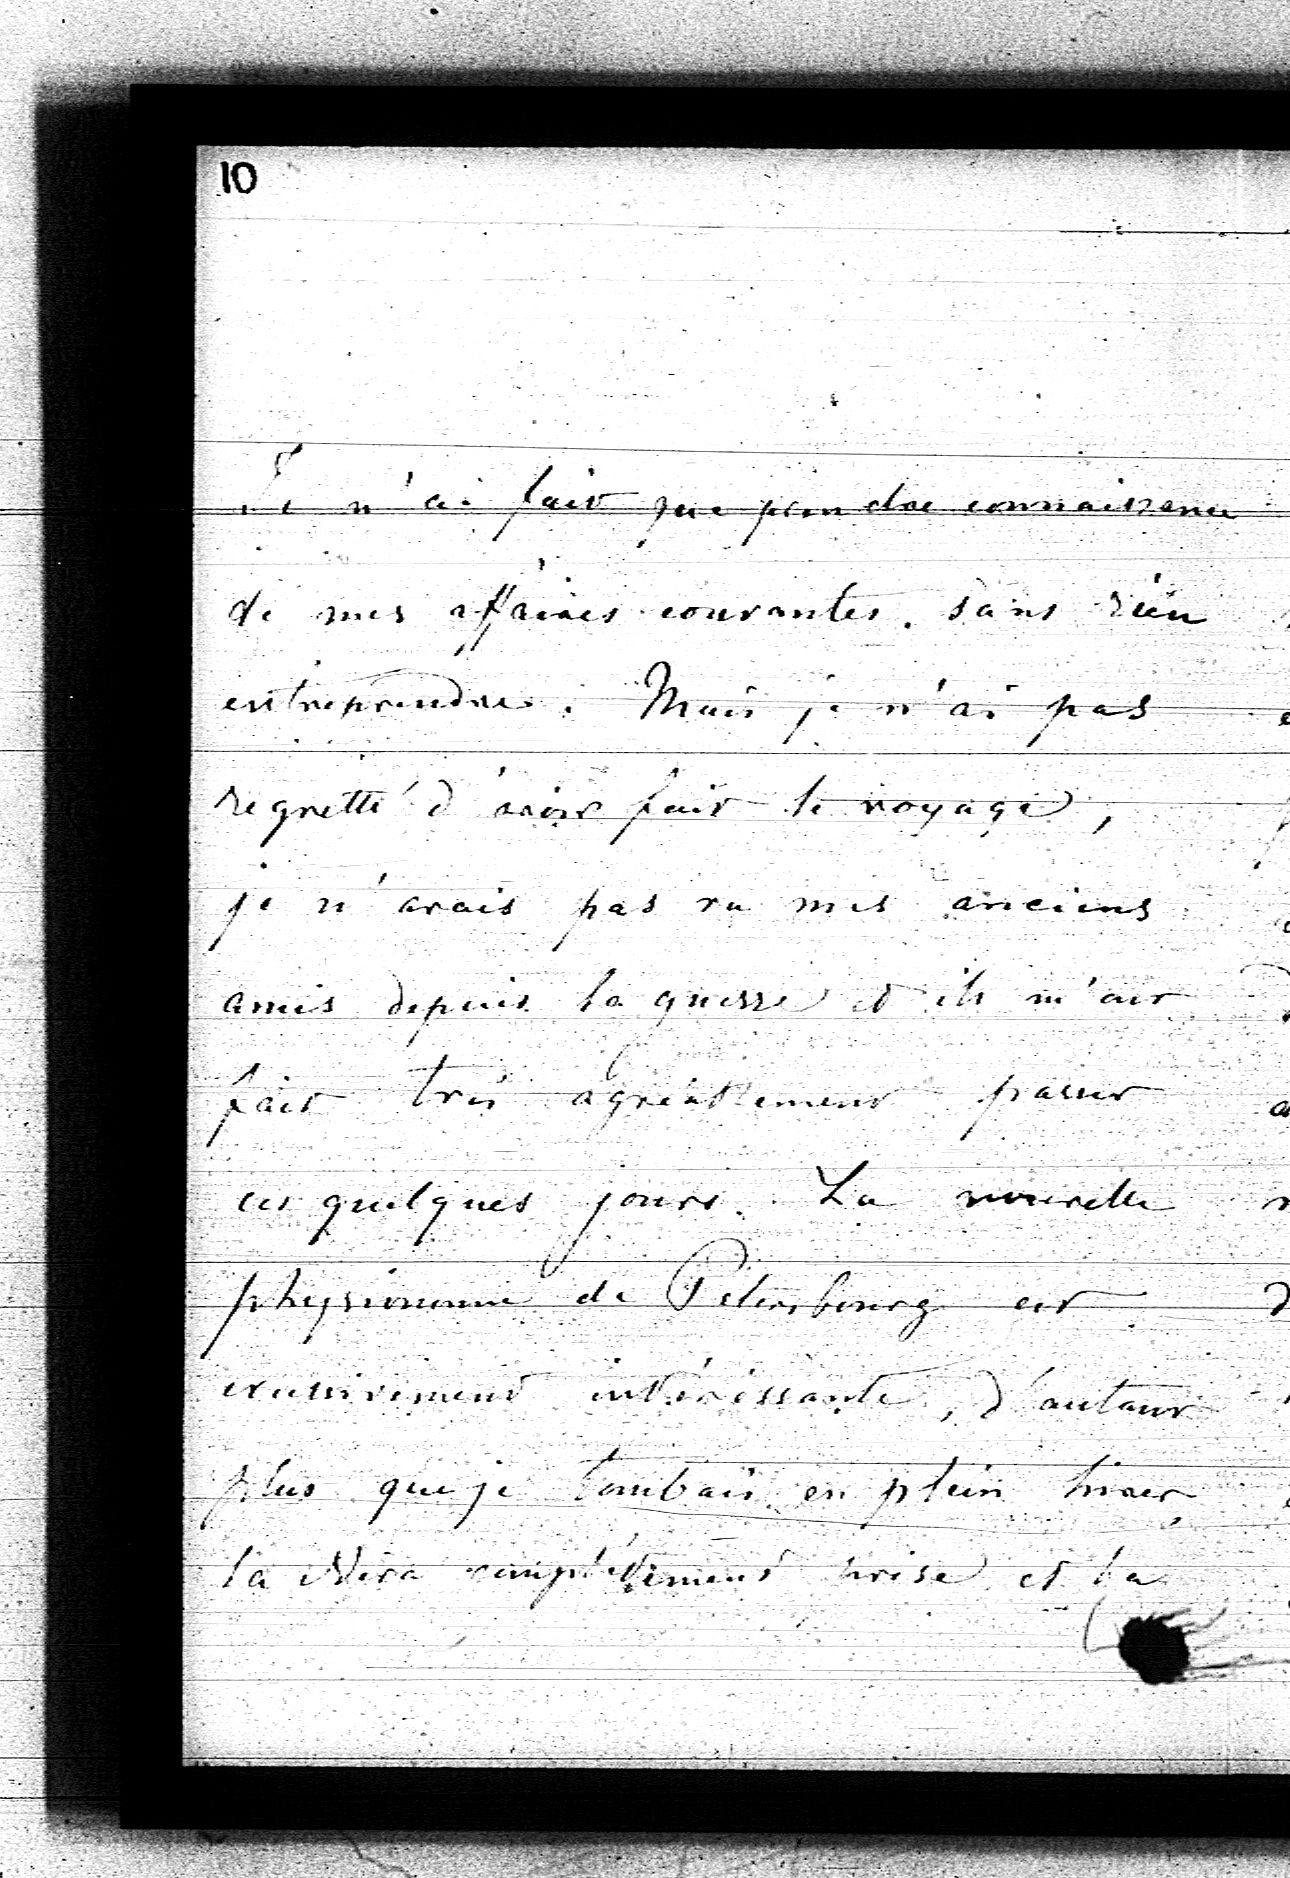 10
Je n'ai fait que prendre connaissance
de mes affaires courantes, sans rien
entreprendre. Mais je n'ai pas
regretté d'avoir fait le voyage,
je n'avais pas vu mes anciens
amis depuis la guerre et ils m'ont
fait très agréablement passer
ces quelques jours. La nouvelle
physionomie de Petersbourg est
excessivement intéressante, d'autant
plus que je tombais en plein hiver,
la Néva complètement prise et la